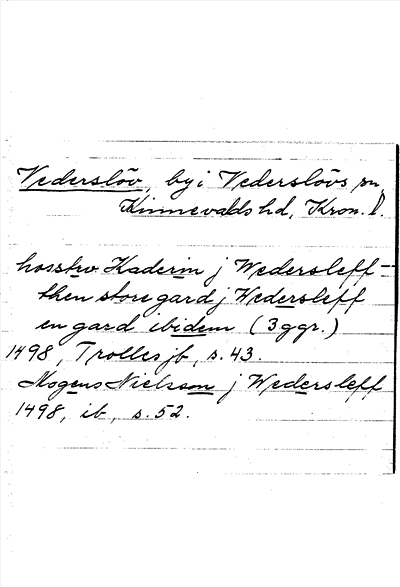 Vederslöv, by i Vederslövs sn,
Kinnevalds hd, Kron. l.
hosstrv Kaderin j Wedersleff –
then store gard j Wedersleff
en gard ibidem (3 ggr.)
1498, Trolles jb, s. 43.
Mogens Nielsson j Wedersleff
1498, ib, s. 52.